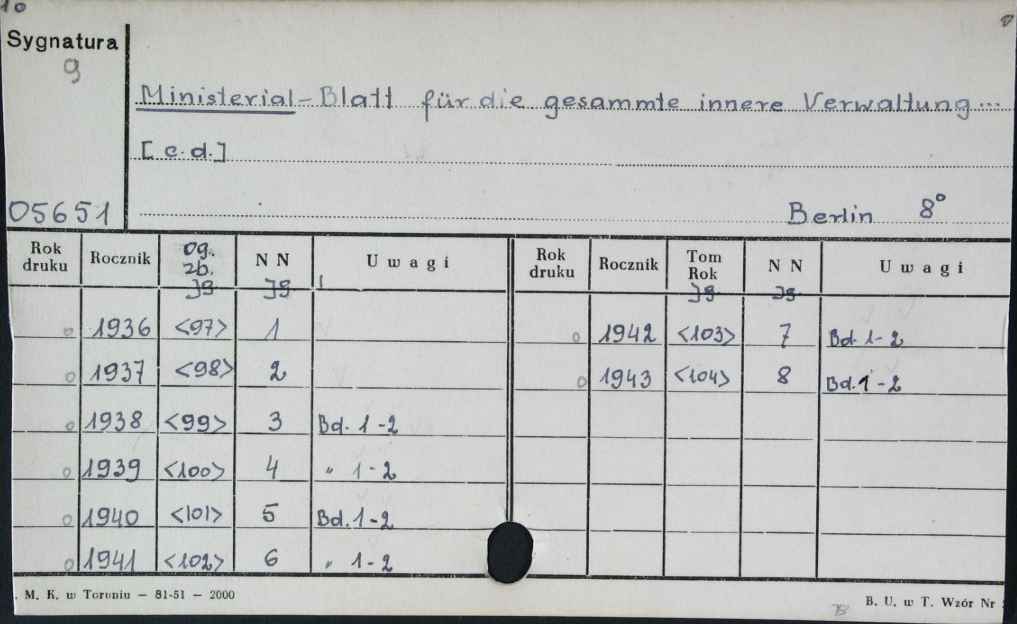 10
Sygnatura
9
Ministerial-Blatt für die gesammte innere Verwaltung...
[c.d.]
05651
Berlin 8°
Rok druku Rocznik og. zb. Jg N N Jg U w a g i Rok druku Rocznik Tom Rok Jg N N Jg U w a g i
o 1936 <97> 1 o 1942 <103> 7 Bd. 1-2
o 1937 <98> 2 o 1943 <104> 8 Bd. 1-2
o 1938 <99> 3 Bd. 1-2
o 1939 <100> 4 " 1-2
o 1940 <101> 5 Bd. 1-2
o 1941 <102> 6 " 1-2
. M. K. w Toruniu — 81-51 — 2000
B. U. w T. Wzór Nr